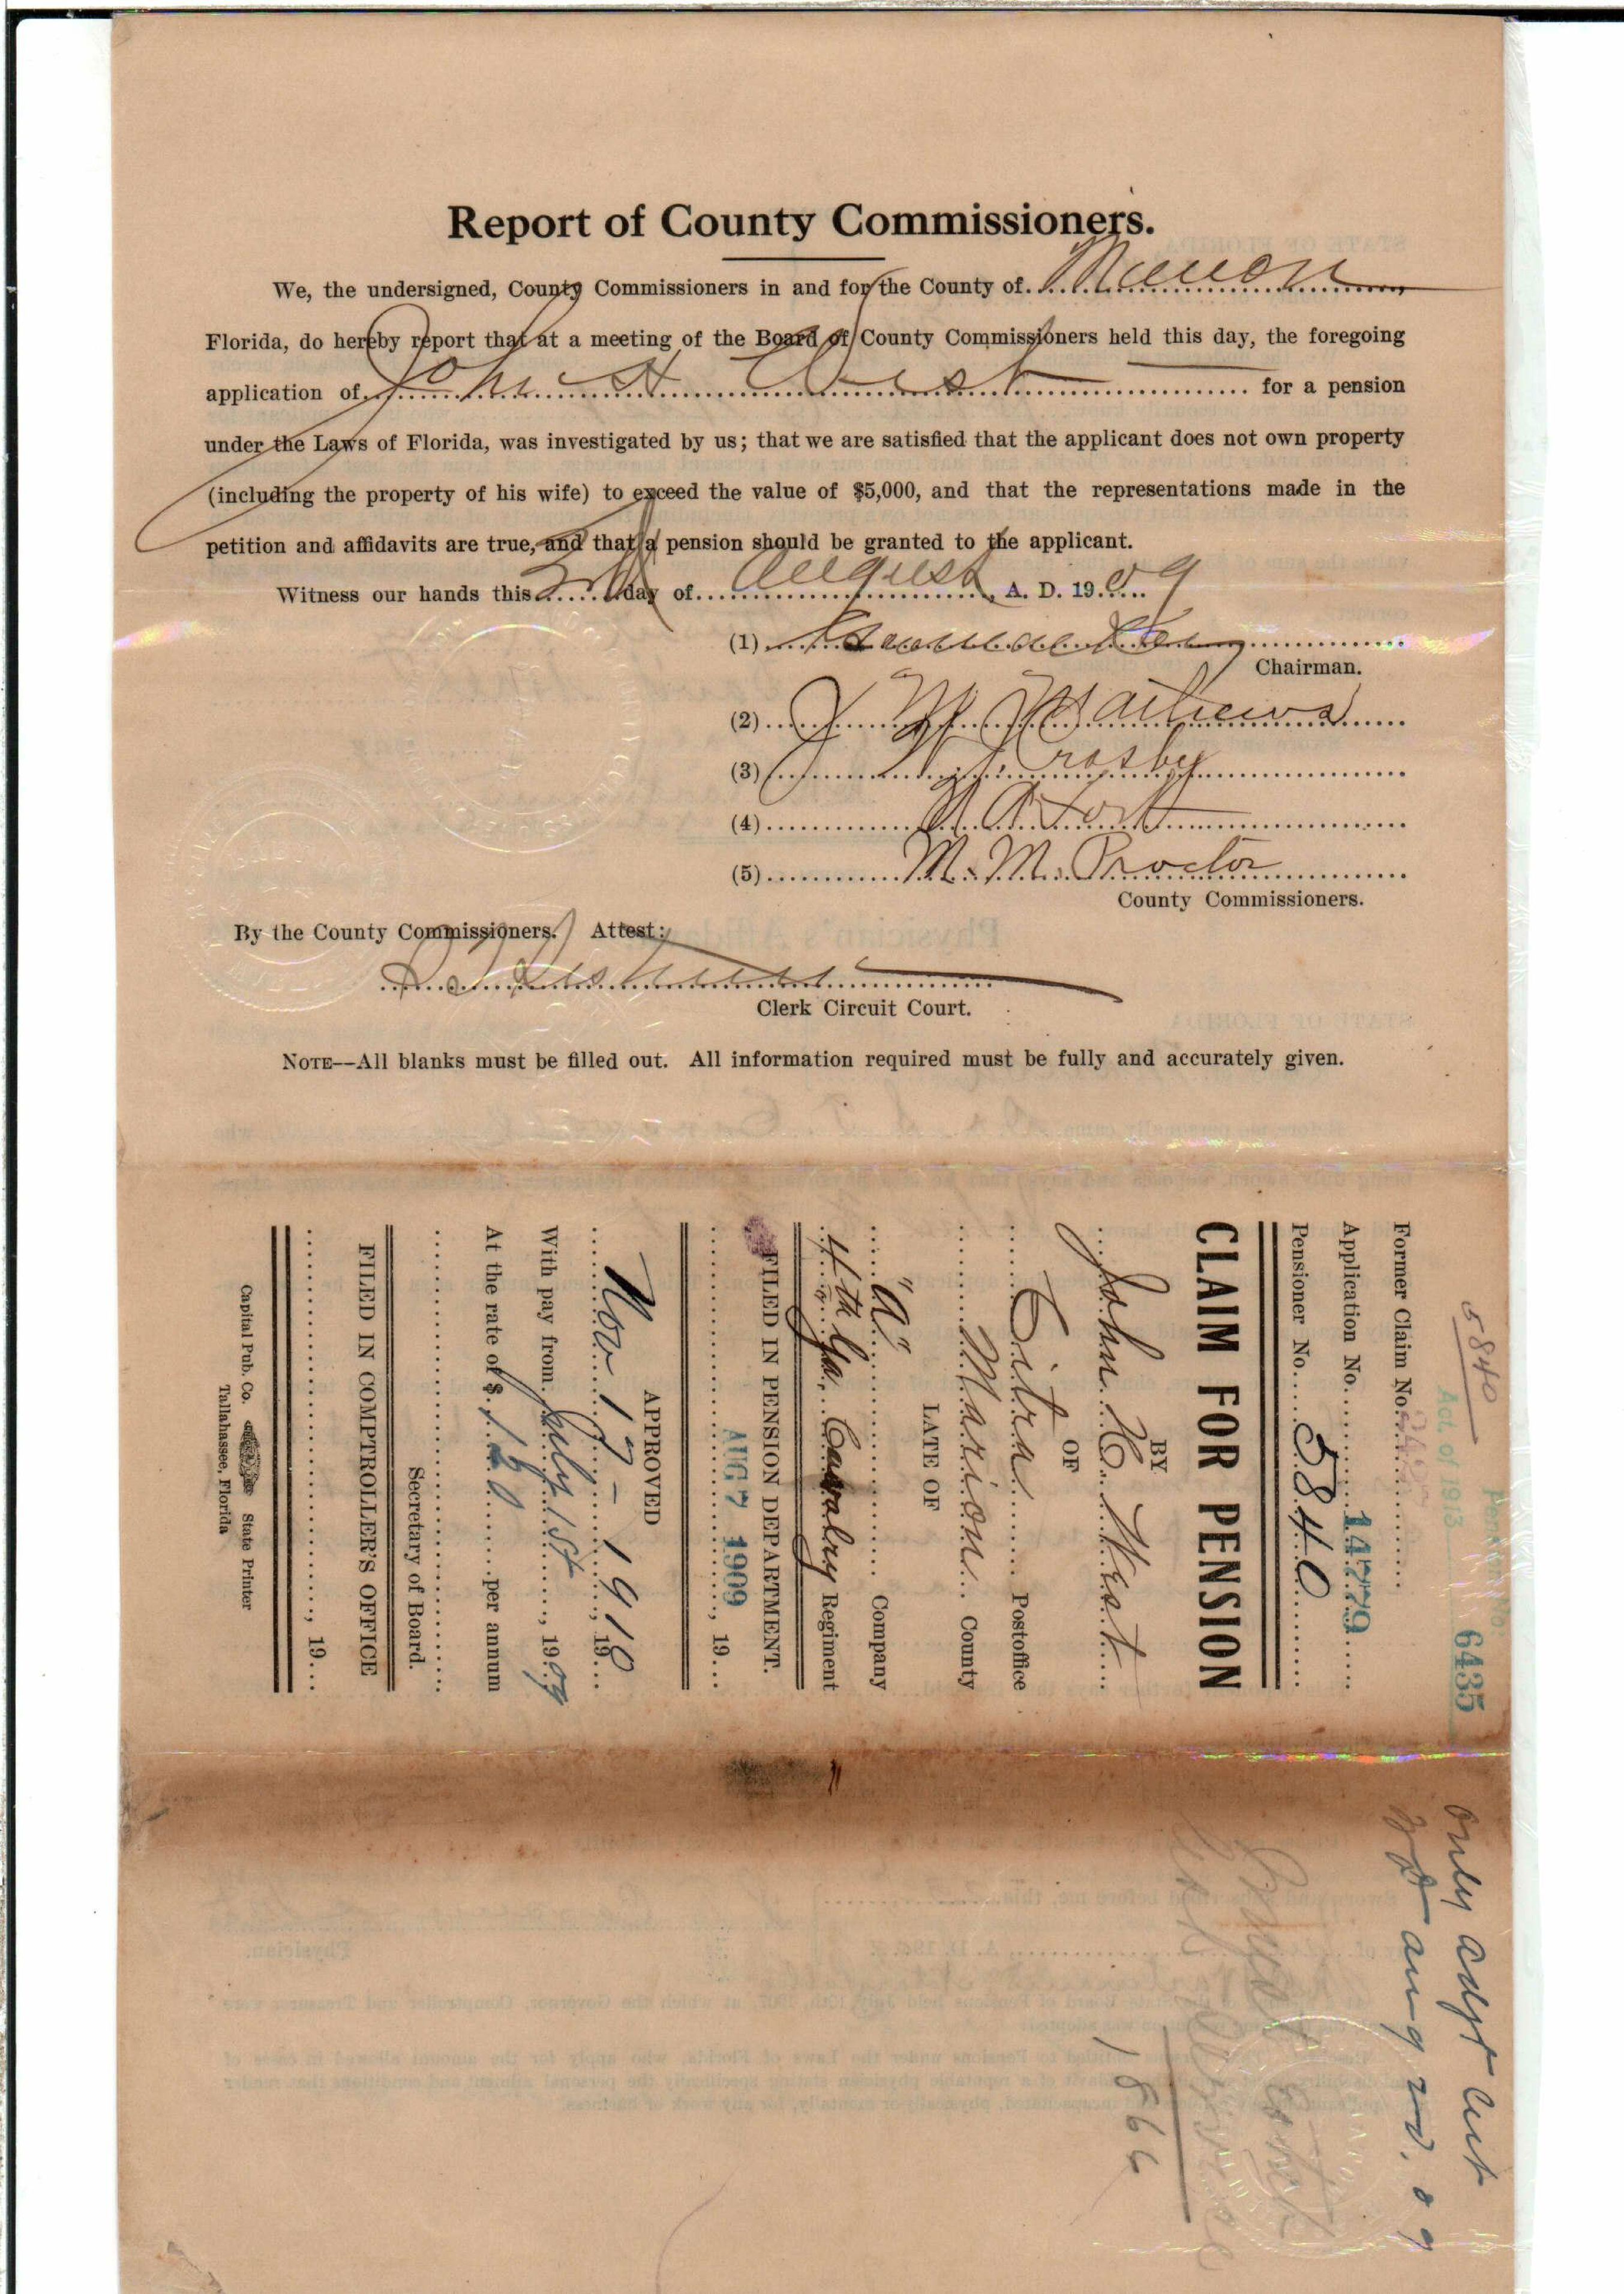 Report of County Commissioners.
We, the undersigned, County Commissioners in and for the County of Marion
Florida, do hereby report that at a meeting of the Board of County Commissioners held this day, the foregoing
application of John H West for a pension
under the Laws of Florida, was investigated by us; that we are satisfied that the applicant does not own property
(including the property of his wife) to exceed the value of $5,000, and that the representations made in the
petition and affidavits are true, and that a pension should be granted to the applicant.
Witness our hands this day of August, A. D. 1909
(1)
Chairman.
(2) J M Mathews
(3) Crosby
(4) Fort
(5) M. M. Proctor
County Commissioners.
By the County Commissioners. Attest:
Clerk Circuit Court.
NOTE--All blanks must be filled out. All information required must be fully and accurately given.
5840
Pension No. 6435
Act of 1913
Former Claim No.
Application No. 14779
Pensioner No. 5840
CLAIM FOR PENSION
BY
John H. West
OF
Citra Postoffice
Marion County
LATE OF
"A" Company
4th Ga. Cavalry Regiment
FILED IN PENSION DEPARTMENT.
AUG 7 1909, 19
APPROVED
Nov 17 - 1910, 19
With pay from July 1st, 1909
At the rate of $ 120 per annum
Secretary of Board.
FILED IN COMPTROLLER'S OFFICE
, 19
Capital Pub. Co. State Printer
Tallahassee, Florida
only
aug
09
1866